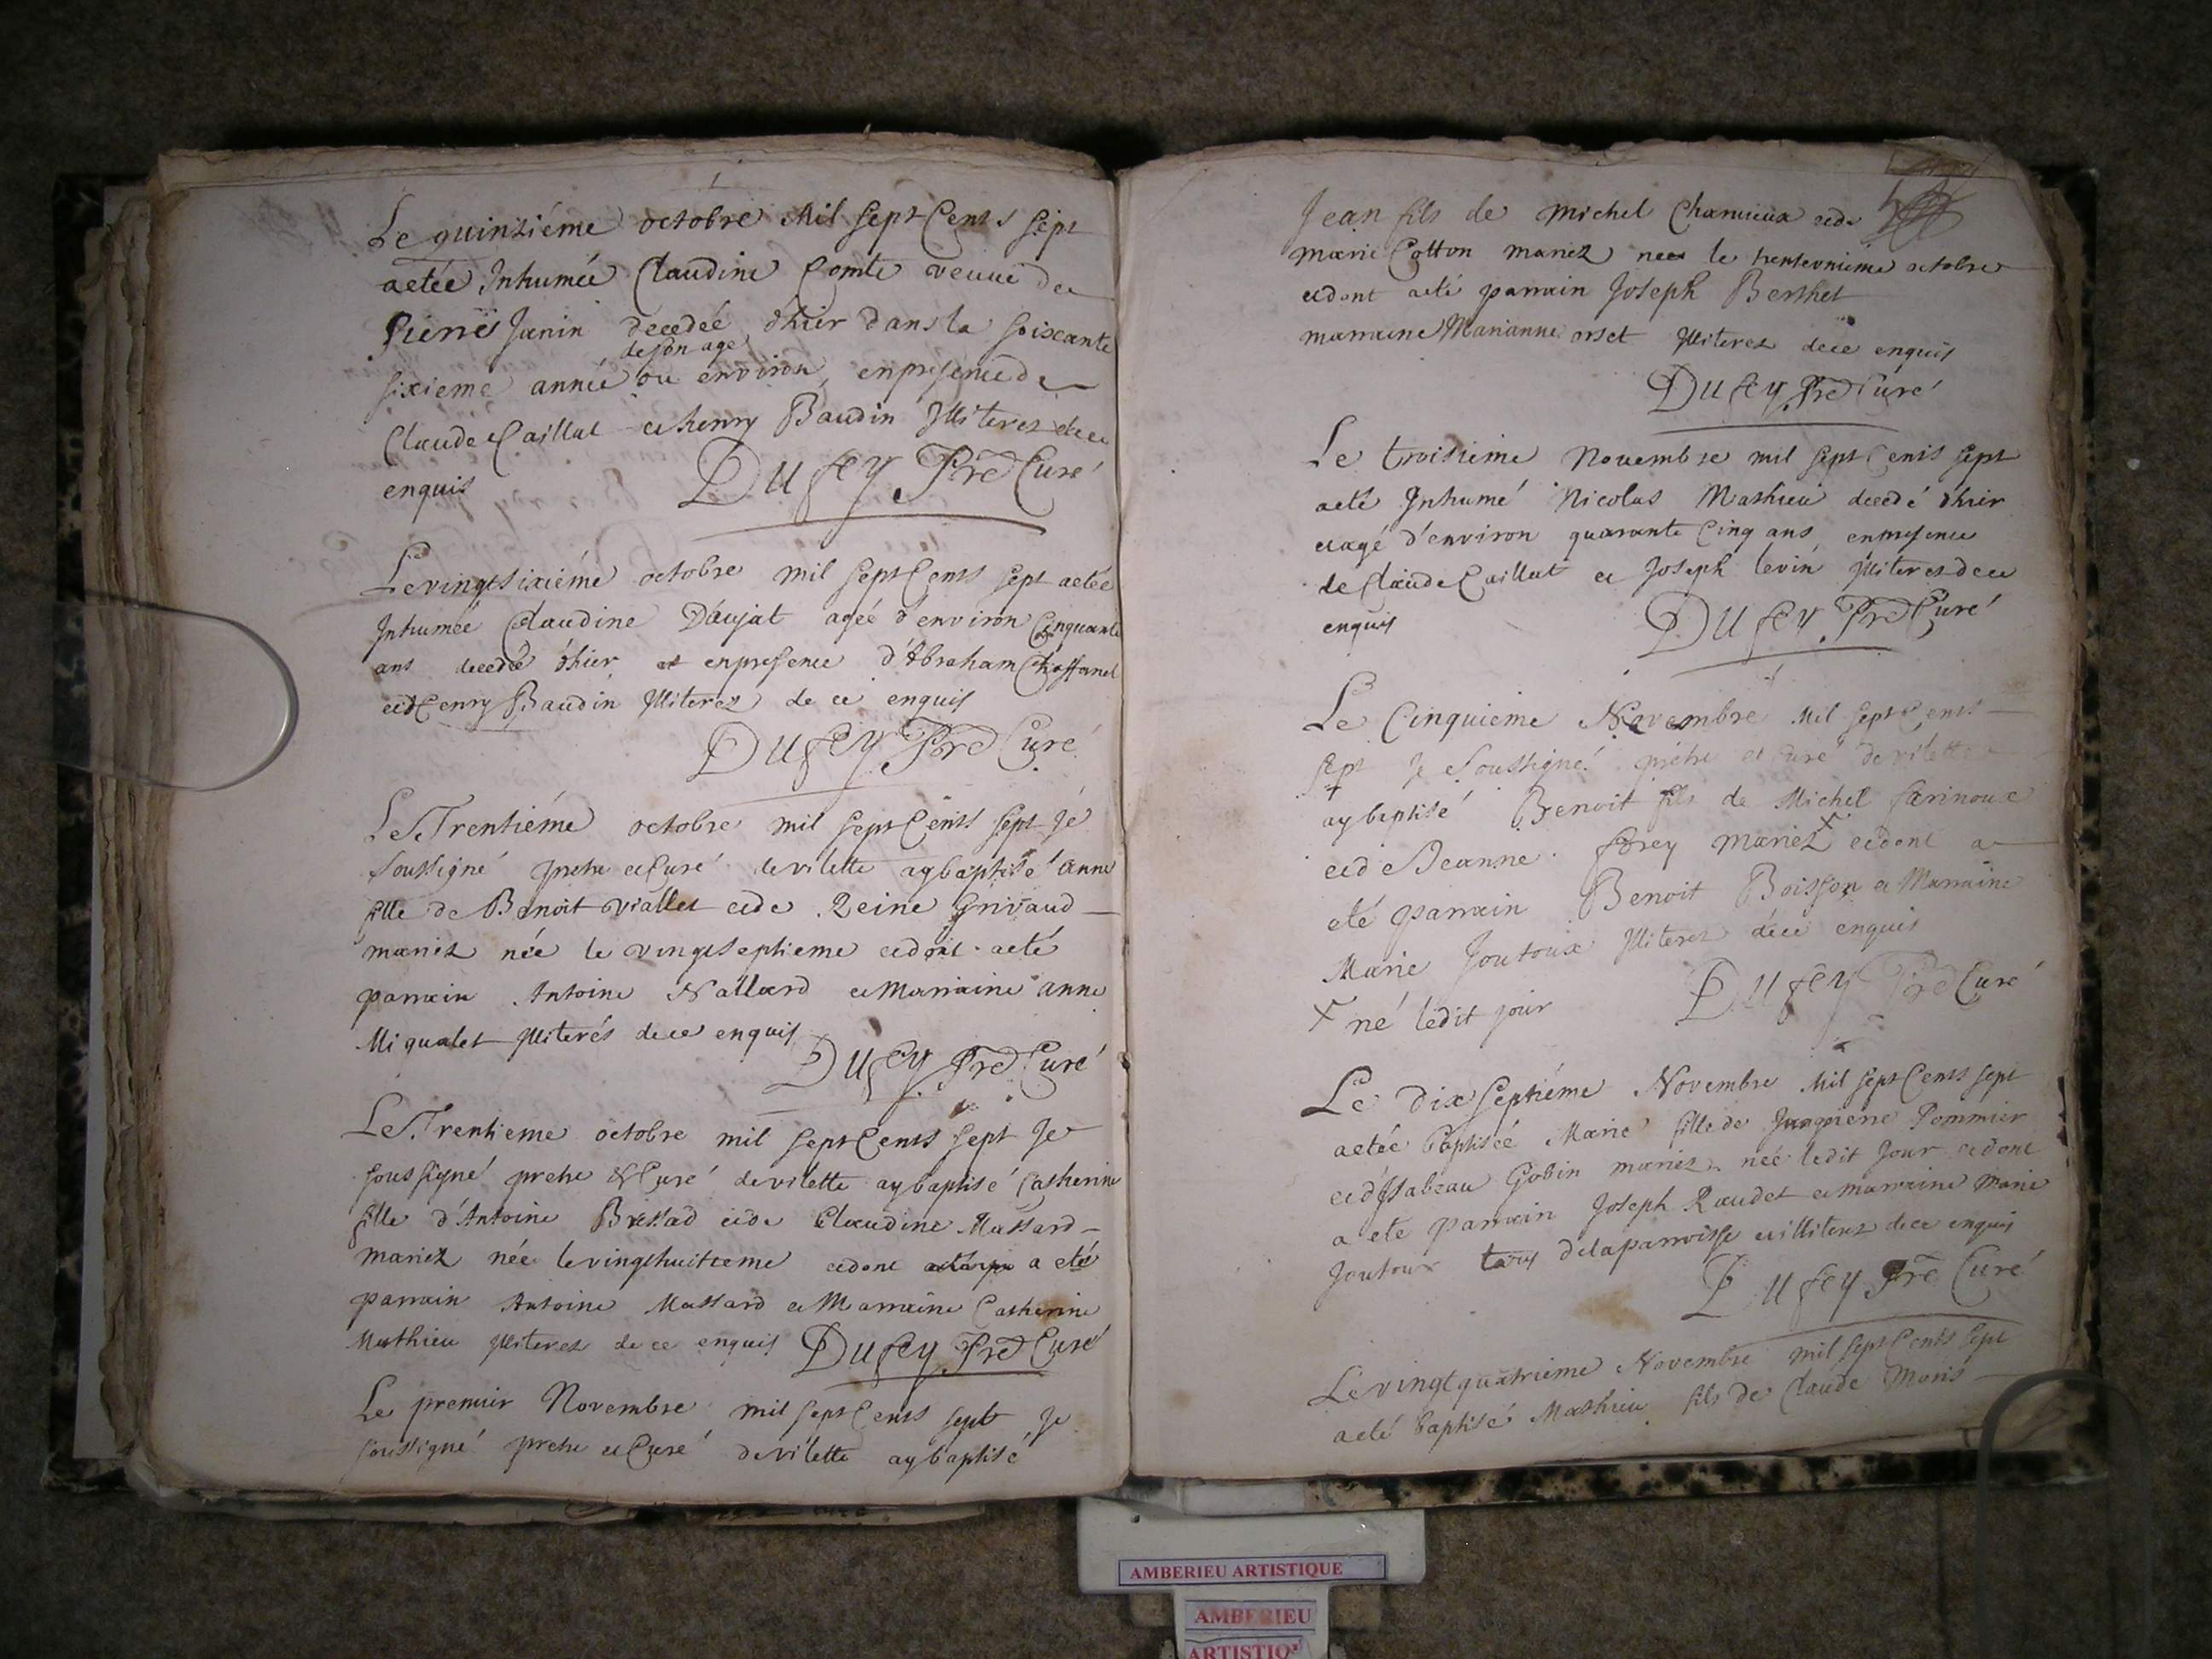 Le quinziéme octobre Mil Sept Cents Sept
aetée Inhumée Claudine Comte veuue de
Pierre Janin décedeé d'hier dans la soiscante
de son age
sixieme année ou environ, enpresence de
Claude Caillat et henry Baudin Illiterez de ce
enquis Dufey Pre Curé
Le vingtsixiéme octobre mil Sept Cents Sept aetée
Inhumée Claudine Daujat agée d'environ Cinquante
ans decedée d'hier et enpresence d'Abraham Chaffanel
et d'henry Baudin Illiterez de ce enquis
Dufey Pre Curé
Le Trentiéme octobre mil Sept Cents Sept je
Soussigné pretre et Curé de vilette ay baptisé Anne
fille de Benoit Viallet et de Reine Grivaud
mariez née le vingtseptieme et dont aeté
parrain Antoine Nallard et Marraine Anne
Miqualet Illiterés de ce enquis
Dufey Pre Curé
Le Trentieme octobre mil Sept Cents Sept Je
Soussigné pretre & Curé de vilette ay baptisé Catherine
fille d'Antoine Bressad et de Claudine Massard
mariez née le vingthuitieme et dont a eté
parrain Antoine Massard et Marraine Catherine
Mathieu Illiterez de ce enquis Dufey Pre Curé
Le premier Novembre mil Sept Cents Sept Je
Soussigné pretre et Curé de vilette ay baptisé
Jean fils de Michel Chamieux et de
marie Cotton mariez nee le trenteunieme octobre
et dont aeté parrain Joseph Berthet
marraine Marianne orset Illiterez de ce enquis
Dufey Pre Curé
Le troisieme Novembre mil Sept Cents Sept
aeté Inhumé Nicolas Mathieu decedé d'hier
et agé d'environ quarante Cinq ans enpresence
de Claude Caillat et Joseph levin Illiterez de ce
enquis Dufey Pre Curé
Le Cinquieme Novembre Mil Sept Cents
Sept Je Soussigné prêtre et Curé de vilette
ay baptisé Benoit fils de Michel farinoux
et de Jeanne forey mariez + et dont a
eté parrain Benoit Boisson et Marraine
Marie Joutoux Illiterez de ce enquis
+ né ledit jour Dufey Pre Curé
Le dix Septiéme Novembre Mil Sept Cents Sept
aetée baptiséé Marie fille de Jeanpierre Pommier
et d'Isabeau Gobin mariez née ledit Jour et dont
a ete parrain Joseph Raudet et marraine Marie
Joutoux tous de la parroisse et illiterez de ce enquis
Dufey Pre Curé
Le vingtquatrieme Novembre mil Sept Cents Sept
aeté baptisé Mathieu fils de Claude Moris
AMBERIEU ARTISTIQUE
AMBERIEU
ARTISTIQ